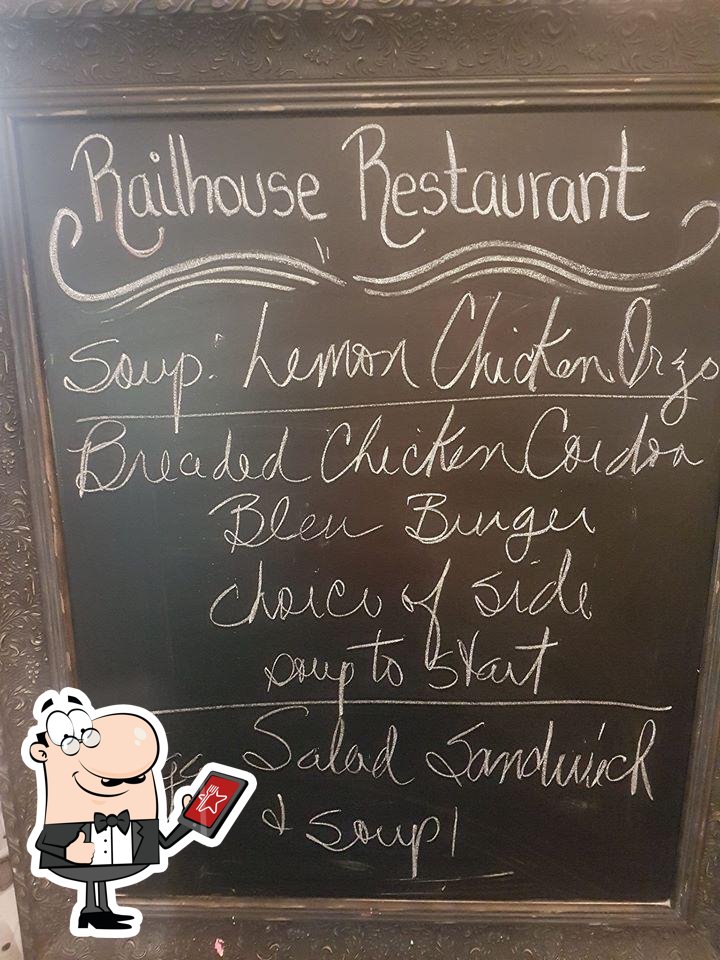 Railhouse Restaurant
Soup: Lemon Chicken Orzo
Breaded Chicken Cordon
Bleu Burger
choice of side
soup to start
Salad Sandwich
& soup